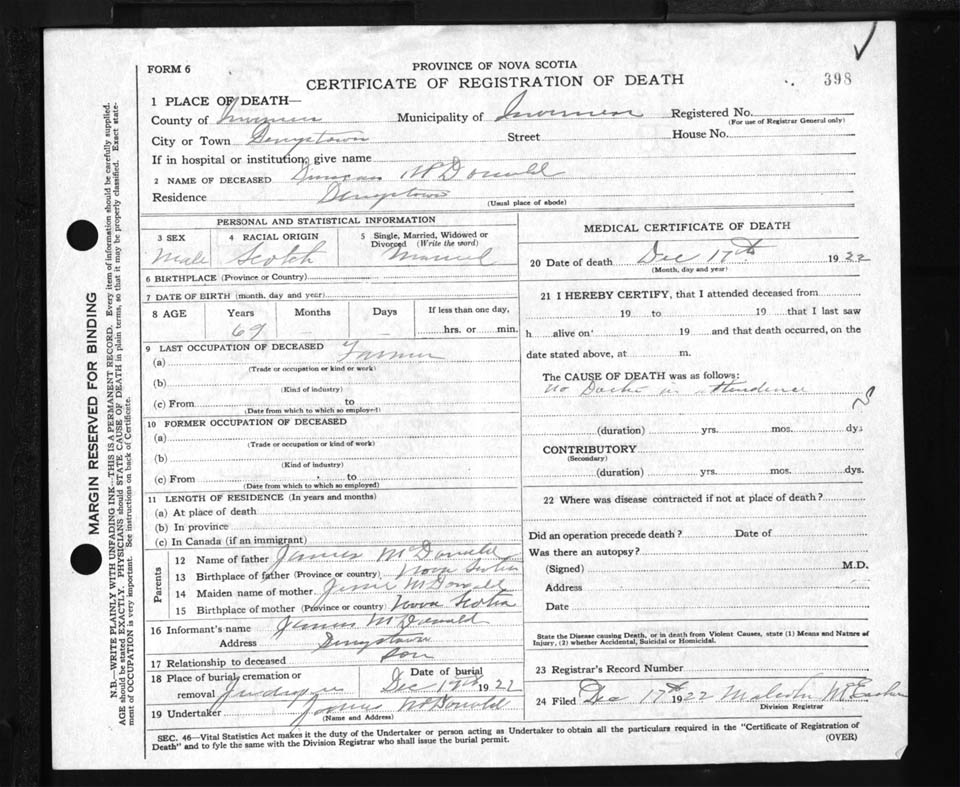 FORM 6
PROVINCE OF NOVA SCOTIA
CERTIFICATE OF REGISTRATION OF DEATH
398
1 PLACE OF DEATH—
County of Inverness Municipality of Inverness Registered No.
(For use of Registrar General only)
City or Town Street House No.
If in hospital or institution, give name
2 NAME OF DECEASED Duncan McDonald
Residence
(Usual place of abode)
PERSONAL AND STATISTICAL INFORMATION
3 SEX 4 RACIAL ORIGIN 5 Single, Married, Widowed or Divorced (Write the word)
Male Scotch Married
6 BIRTHPLACE (Province or Country)
7 DATE OF BIRTH (month, day and year)
8 AGE Years Months Days If less than one day,
69 – – hrs. or min.
9 LAST OCCUPATION OF DECEASED
(a) Farmer
(Trade or occupation or kind or work)
(b)
(Kind of industry)
(c) From to
(Date from which to which so employed)
10 FORMER OCCUPATION OF DECEASED
(a)
(Trade or occupation or kind of work)
(b)
(Kind of industry)
(c) From to
(Date from which to which so employed)
11 LENGTH OF RESIDENCE (In years and months)
(a) At place of death
(b) In province
(c) In Canada (if an immigrant)
Parents
12 Name of father James McDonald
13 Birthplace of father (Province or country) Nova Scotia
14 Maiden name of mother McDonald
15 Birthplace of mother (Province or country) Nova Scotia
16 Informant's name James McDonald
Address
17 Relationship to deceased Son
18 Place of burial, cremation or removal Date of burial
Dec 19th 1922
19 Undertaker James McDonald
(Name and Address)
MEDICAL CERTIFICATE OF DEATH
20 Date of death Dec 17th 1922
(Month, day and year)
21 I HEREBY CERTIFY, that I attended deceased from
19 to 19 that I last saw
h alive on 19 and that death occurred, on the
date stated above, at m.
The CAUSE OF DEATH was as follows:
No Doctor in attendence
(duration) yrs. mos. dys.
CONTRIBUTORY
(Secondary)
(duration) yrs. mos. dys.
22 Where was disease contracted if not at place of death?
Did an operation precede death? Date of
Was there an autopsy?
(Signed) M.D.
Address
Date
State the Disease causing Death, or in death from Violent Causes, state (1) Means and Nature of
Injury, (2) whether Accidental, Suicidal or Homicidal.
23 Registrar's Record Number
24 Filed Dec 17th 1922 Malcolm
Division Registrar
SEC. 46—Vital Statistics Act makes it the duty of the Undertaker or person acting as Undertaker to obtain all the particulars required in the "Certificate of Registration of
Death" and to fyle the same with the Division Registrar who shall issue the burial permit. (OVER)
MARGIN RESERVED FOR BINDING
N.B.—WRITE PLAINLY WITH UNFADING INK—THIS IS A PERMANENT RECORD. Every item of information should be carefully supplied.
AGE should be stated EXACTLY. PHYSICIANS should STATE CAUSE OF DEATH in plain terms, so that it may be properly classified. Exact state-
ment of OCCUPATION is very important. See instructions on back of Certificate.